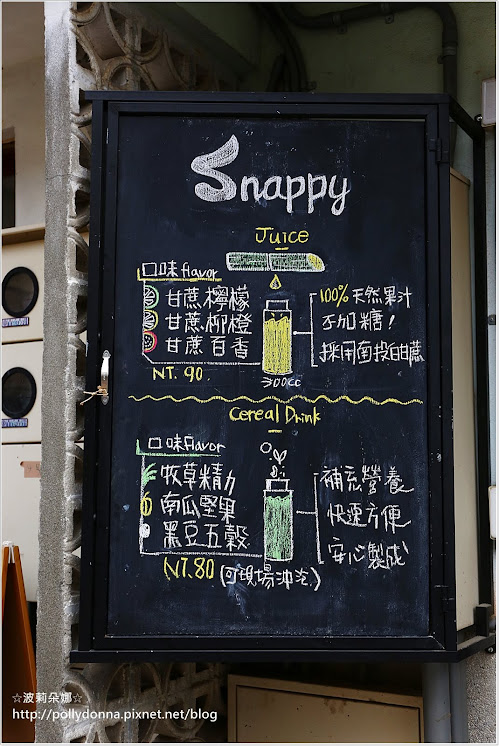 Snappy
Juice
口味 flavor
甘蔗.檸檬
甘蔗.柳橙
甘蔗百香
NT. 90.
300cc
100% 天然果汁
不加糖!
採用南投白甘蔗
Cereal Drink
口味 flavor
牧草精力
南瓜堅果
黑豆五穀
NT.80 (可現場沖泡.)
補充營養
快速方便
安心製成
☆波莉朵娜☆
http://pollydonna.pixnet.net/blog